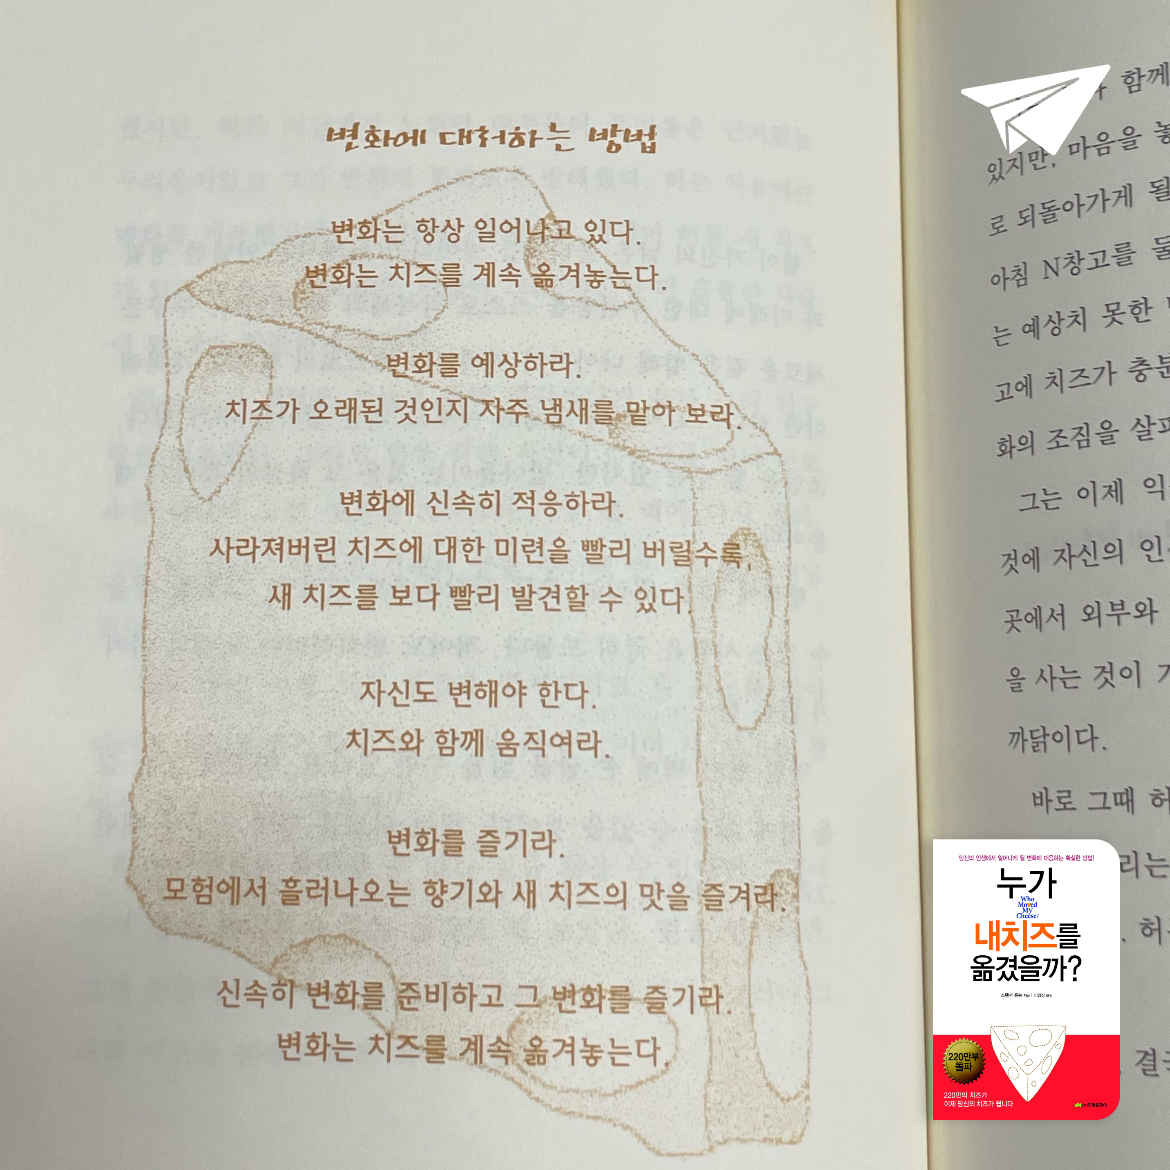 변화에 대처하는 방법
변화는 항상 일어나고 있다.
변화는 치즈를 계속 옮겨놓는다.
변화를 예상하라.
치즈가 오래된 것인지 자주 냄새를 맡아 보라.
변화에 신속히 적응하라.
사라져버린 치즈에 대한 미련을 빨리 버릴수록,
새 치즈를 보다 빨리 발견할 수 있다.
자신도 변해야 한다.
치즈와 함께 움직여라.
변화를 즐기라.
모험에서 흘러나오는 향기와 새 치즈의 맛을 즐겨라.
신속히 변화를 준비하고 그 변화를 즐기라.
변화는 치즈를 계속 옮겨놓는다.
함께
있지만, 마음을
로 되돌아가게 될
아침 N창고를
는 예상치 못한
고에 치즈가 충분
화의 조짐을 살피
그는 이제 익
것에 자신의 인
곳에서 외부와
을 사는 것이
까닭이다.
바로 그때 허
리는
. 허
, 결국
당신의 인생에서 일어나게 될 변화에 대응하는 확실한 방법!
누가
Who
Moved
My
Cheese?
내치즈를
옮겼을까?
220만부
돌파
220만의 치즈가
이제 당신의 치즈가 됩니다